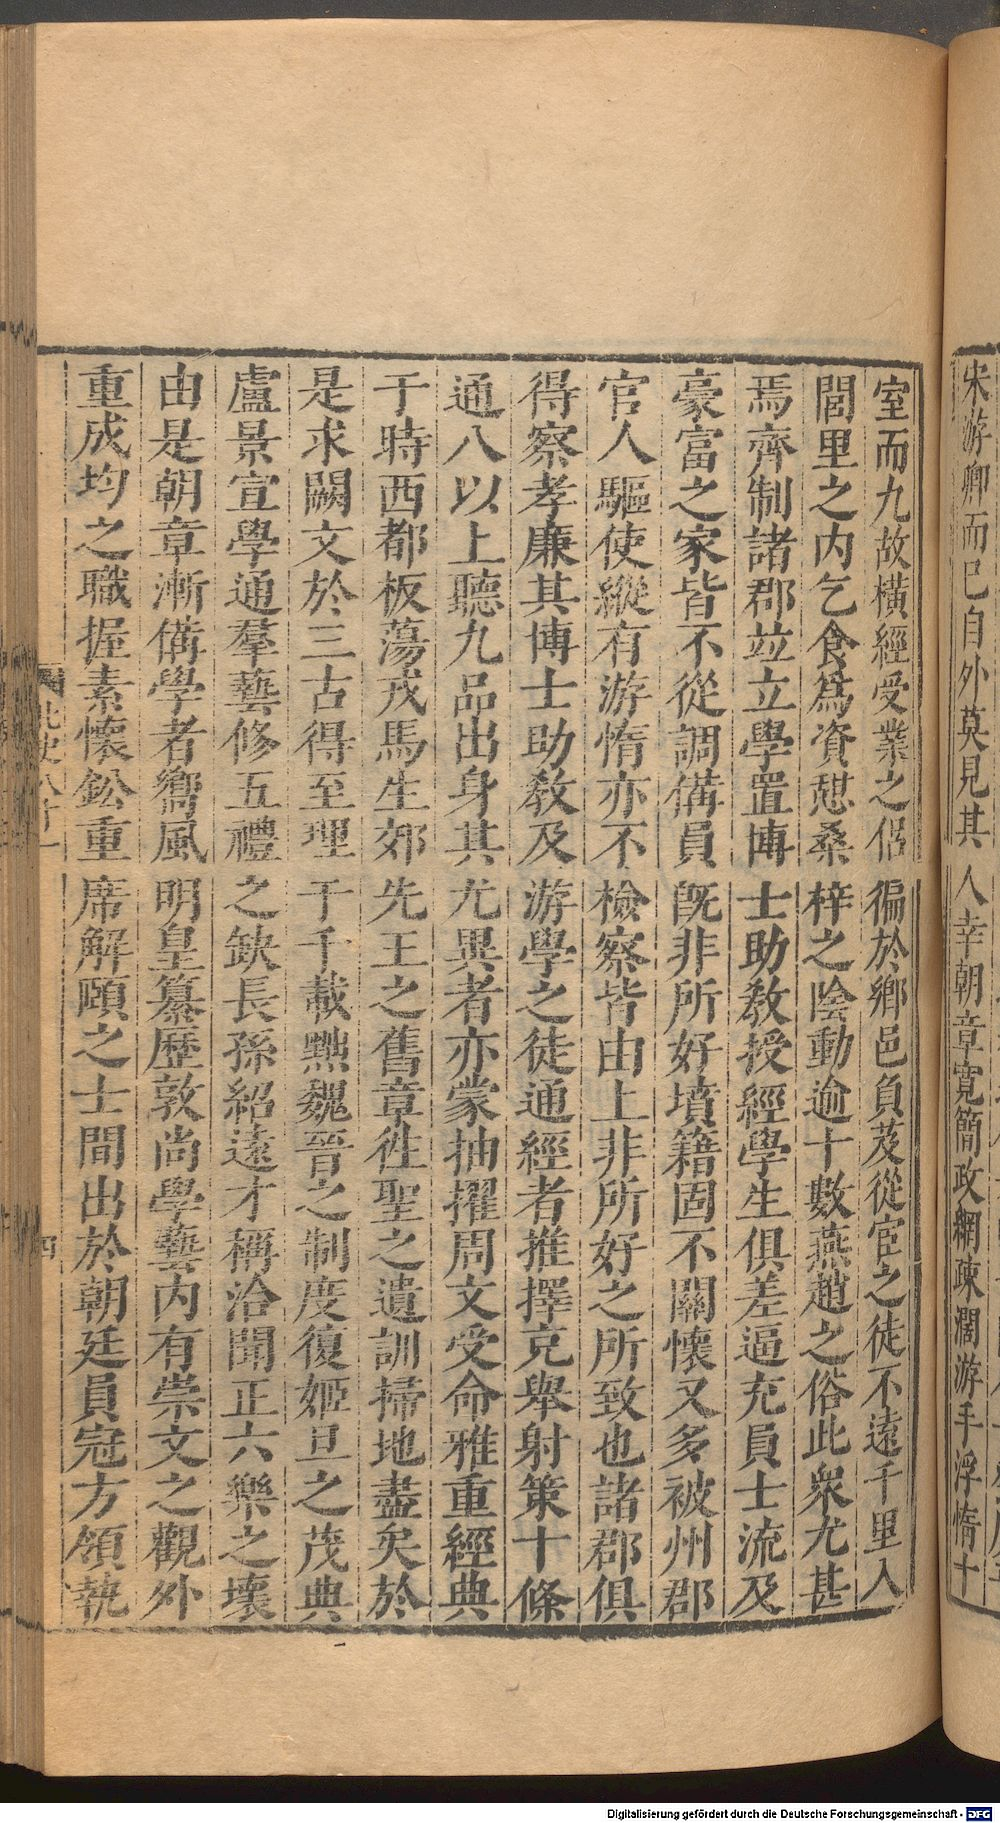 宋游卿而已自外莫見其人幸朝章寬簡政網疎濶游手浮惰十
室而九故橫經受業之侶徧於鄉邑負芨從宦之徒不遠千里入
閭里之內乞食爲資憇桑梓之陰動逾十數燕趙之俗此衆尤甚
焉齊制諸郡竝立學置博士助敎授經學生俱差逼充員士流及
豪富之家皆不從調備員旣非所好墳籍固不關懷又多被州郡
官人驅使縱有游惰亦不檢察皆由上非所好之所致也諸郡俱
得察孝廉其博士助敎及游學之徒通經者推擇充舉射策十條
通八以上聽九品出身其尤異者亦蒙抽擢周文受命雅重經典
于時西都板蕩戎馬生郊先王之舊章徃聖之遺訓掃地盡矣於
是求闕文於三古得至理于千載黜魏晉之制度復姬旦之茂典
盧景宣學通羣藝修五禮之缺長孫紹遠才稱洽聞正六樂之壞
由是朝章漸備學者嚮風明皇纂歷敦尚學藝內有崇文之觀外
重成均之職握素懷鈆重席解頤之士間出於朝廷員冠方領執
北史八十一
四
Digitalisierung gefördert durch die Deutsche Forschungsgemeinschaft - DFG